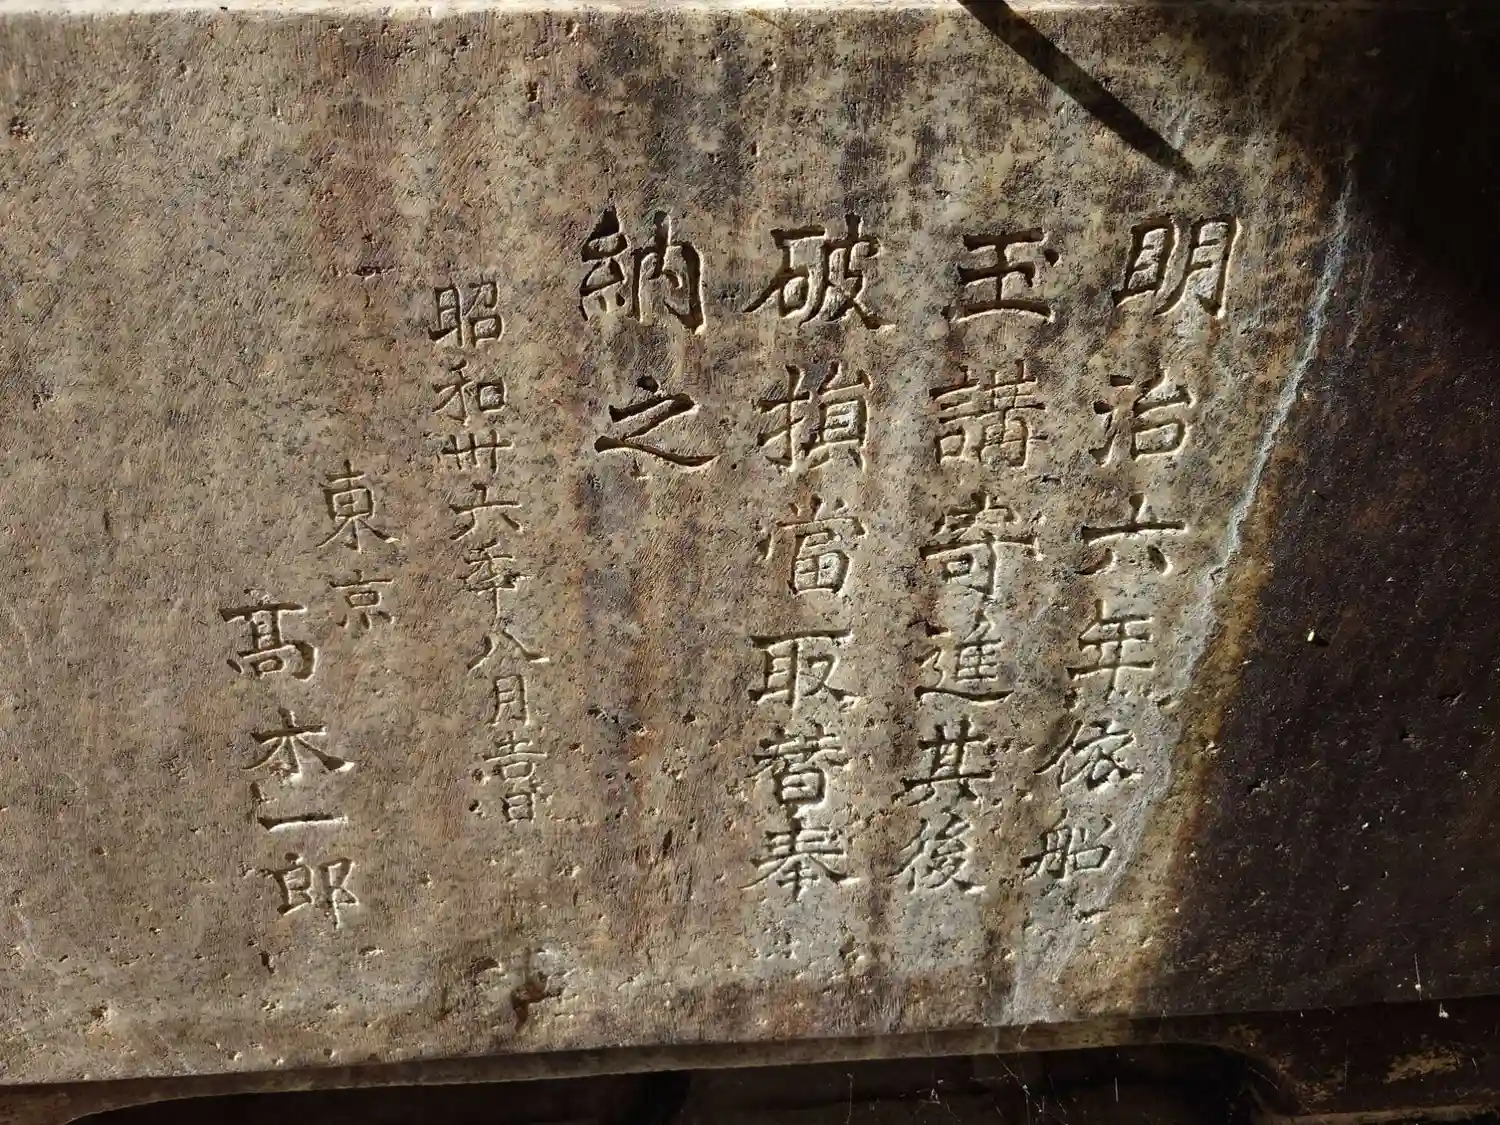 明治六年依船
玉講寄進其後
破損當取替奉
納之
昭和卌六年八月吉日
東京
髙木一郎